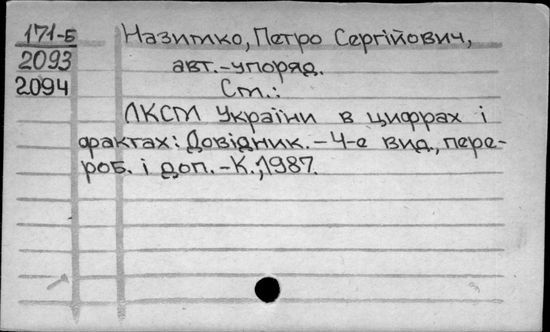 171-Б
2093
2094
Назимко, Петро Сергійович,
авт.-упоряд.
См.:
ЛКСМ України в цифрах і
фрактах: Довідник. - 4-е вид., пере-
роб. і доп. - К., 1987.